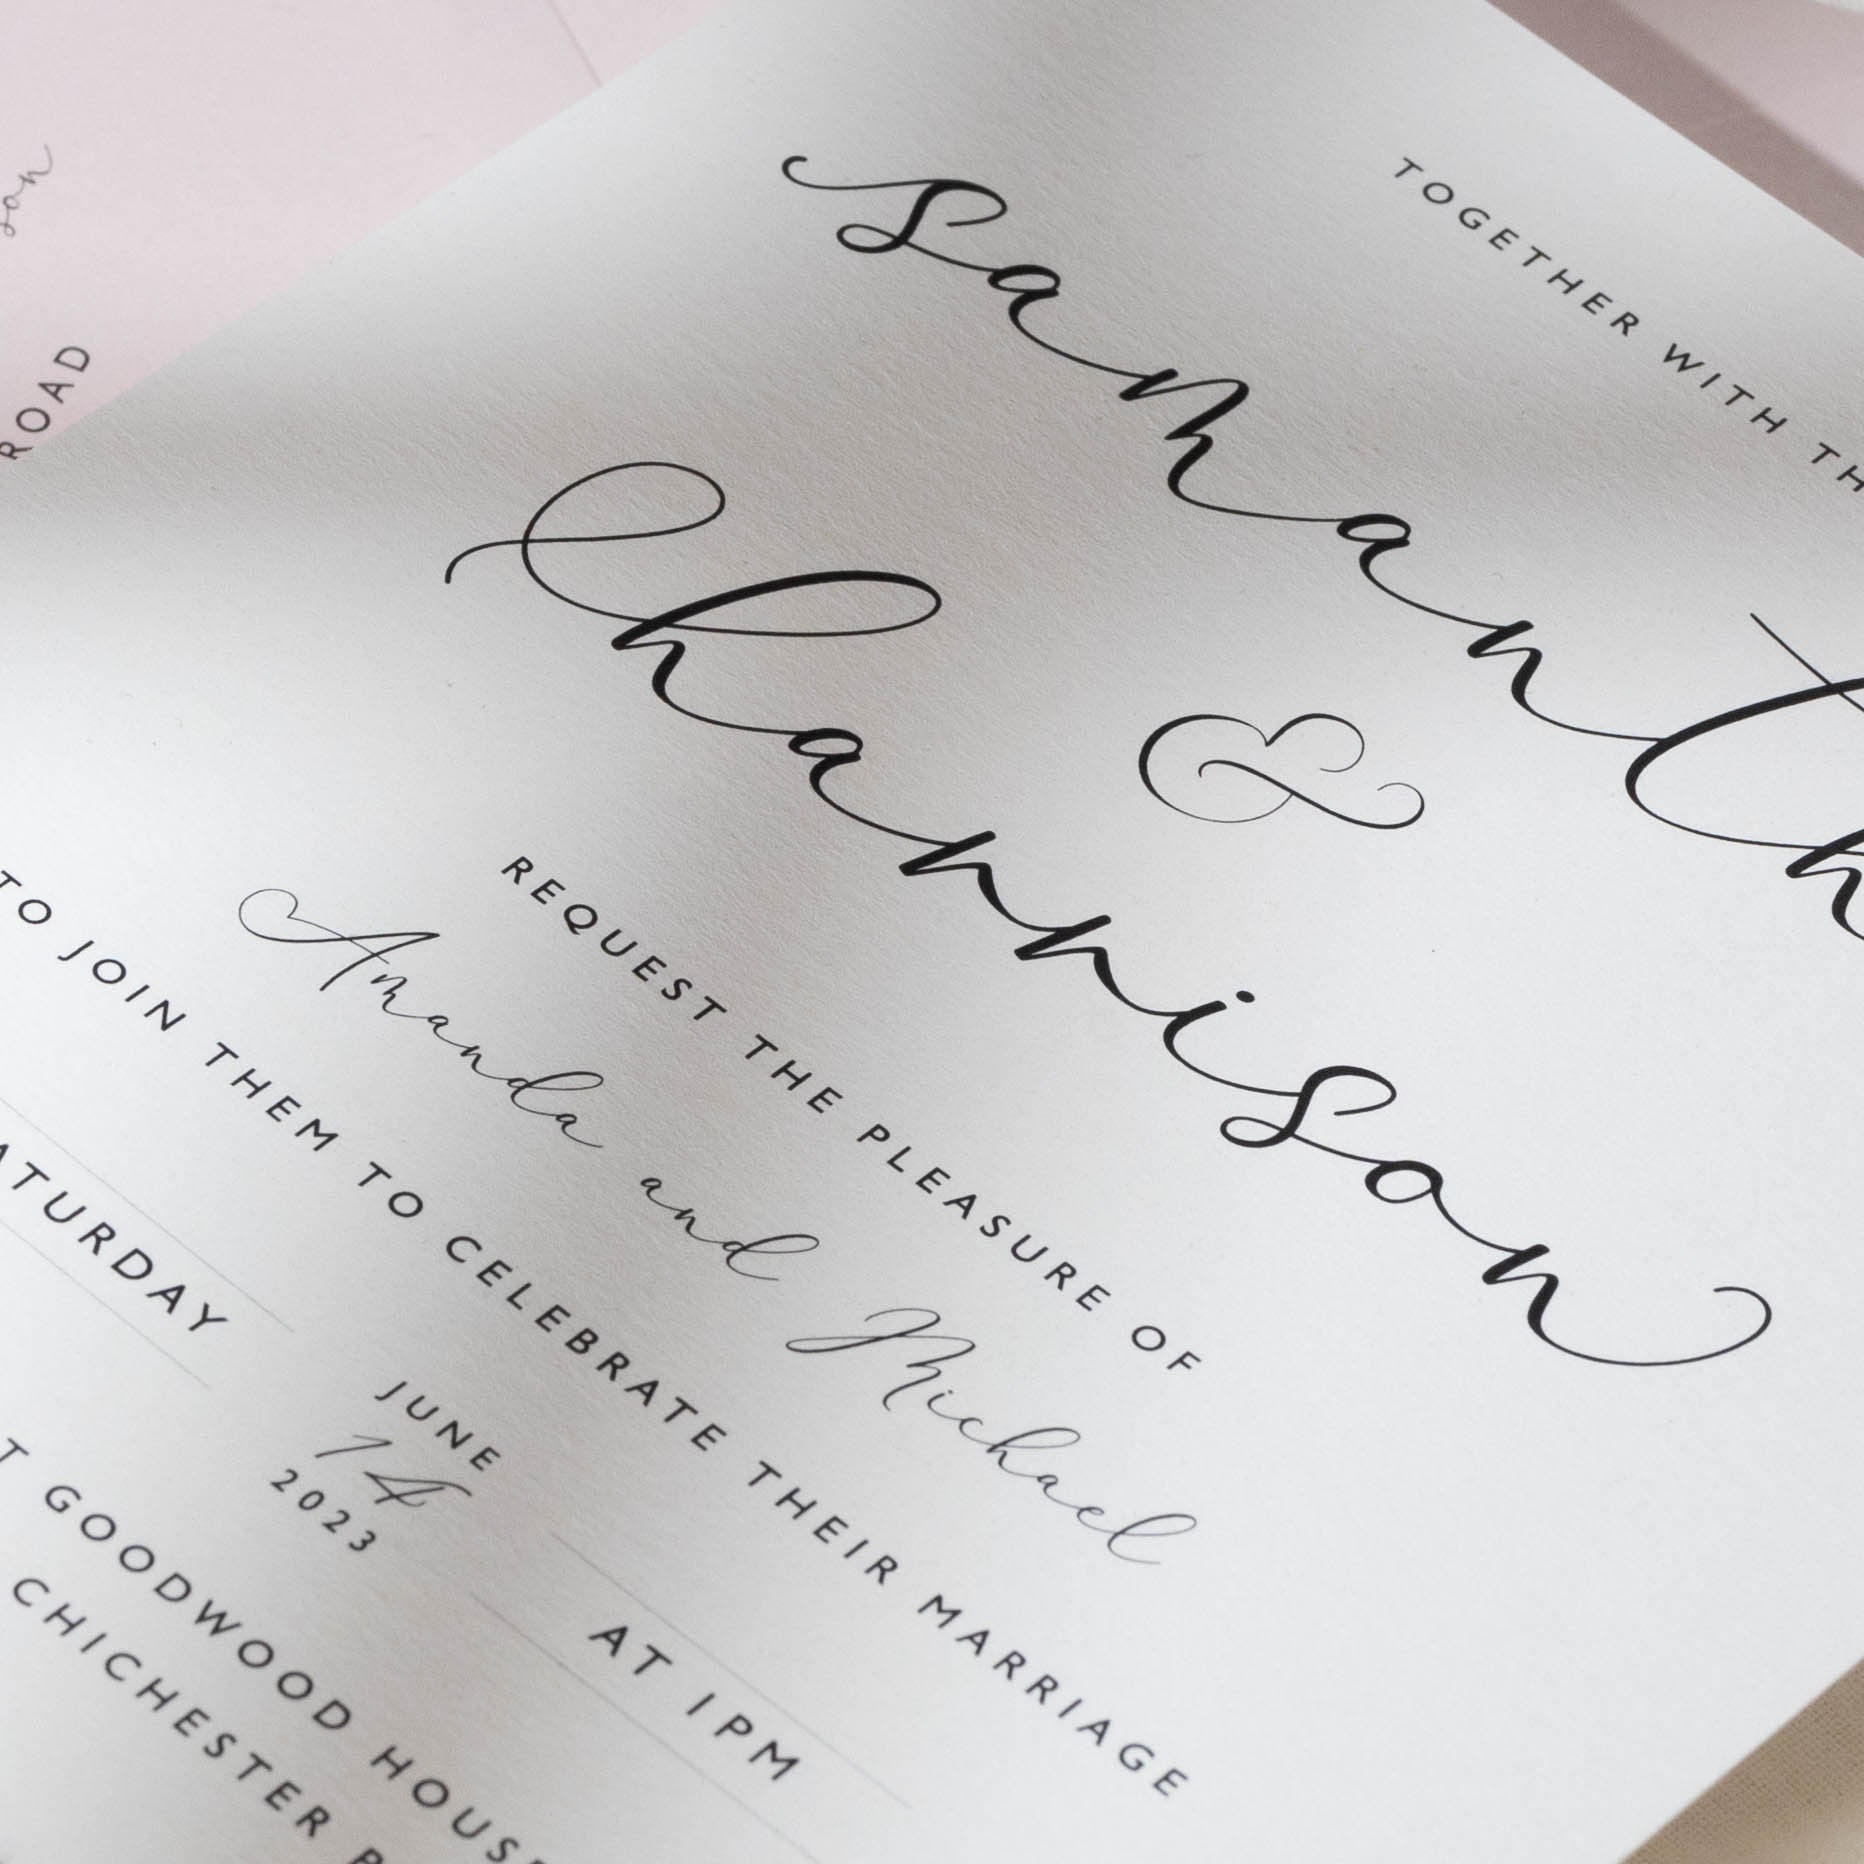 son
ROAD
TOGETHER WITH TH
Samanth
&
Channison
REQUEST THE PLEASURE OF
Amanda and Michael
TO JOIN THEM TO CELEBRATE THEIR MARRIAGE
ATURDAY
JUNE
14
2023
AT 1PM
T GOODWOOD HOUSE
CHICHESTER